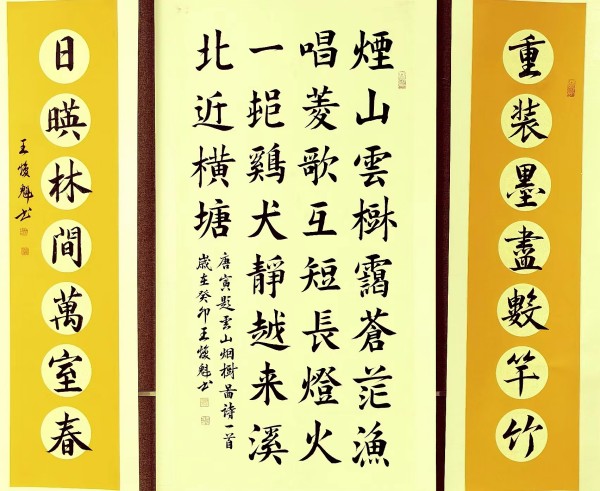 重装墨盡數竿竹
煙山雲樹靄蒼茫漁
唱菱歌互短長燈火
一邨鷄犬靜越来溪
北近橫塘
唐寅题雲山烟樹啚诗一首
歲在癸卯王焌魁书
日暎林間萬室春
王焌魁书